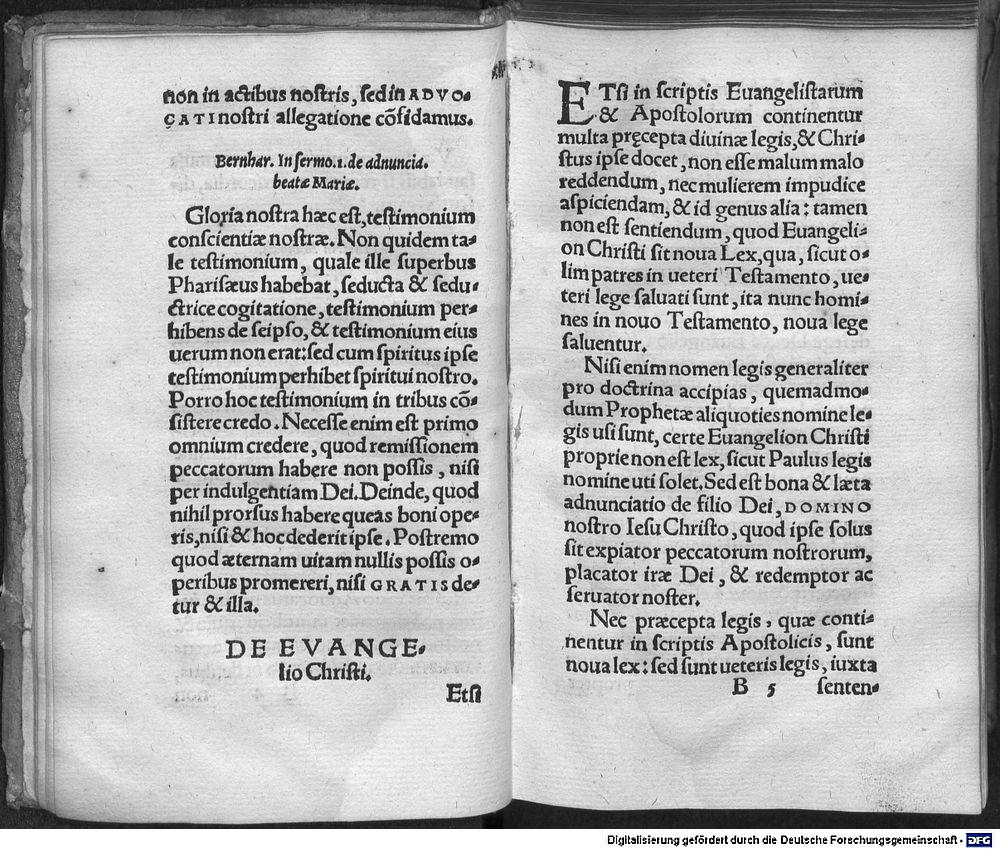 non in actibus nostris, sed in ADVO-
CATI nostri allegatione cōfidamus.
Bernhar. In sermo. 1. de adnuncia.
beatæ Mariæ.
Gloria nostra hæc est, testimonium
conscientiæ nostræ. Non quidem ta-
le testimonium, quale ille superbus
Pharisæus habebat, seducta & sedu-
ctrice cogitatione, testimonium per-
hibens de seipso, & testimonium eius
uerum non erat: sed cum spiritus ipse
testimonium perhibet spiritui nostro.
Porro hoc testimonium in tribus cō-
sistere credo. Necesse enim est primo
omnium credere, quod remissionem
peccatorum habere non possis, nisi
per indulgentiam Dei. Deinde, quod
nihil prorsus habere queas boni ope-
ris, nisi & hoc dederit ipse. Postremo
quod æternam uitam nullis possis o-
peribus promereri, nisi GRATIS de-
tur & illa.
DE EVANGE-
lio Christi.
Etsi
ETsi in scriptis Euangelistarum
& Apostolorum continentur
multa pręcepta diuinæ legis, & Chri-
stus ipse docet, non esse malum malo
reddendum, nec mulierem impudice
aspiciendam, & id genus alia: tamen
non est sentiendum, quod Euangeli-
on Christi sit noua Lex, qua, sicut o-
lim patres in ueteri Testamento, ue-
teri lege saluati sunt, ita nunc homi-
nes in nouo Testamento, noua lege
saluentur.
Nisi enim nomen legis generaliter
pro doctrina accipias, quemadmo-
dum Prophetæ aliquoties nomine le-
gis usi sunt, certe Euangelion Christi
proprie non est lex, sicut Paulus legis
nomine uti solet. Sed est bona & læta
adnunciatio de filio Dei, DOMINO
nostro Iesu Christo, quod ipse solus
sit expiator peccatorum nostrorum,
placator iræ Dei, & redemptor ac
seruator noster.
Nec præcepta legis, quæ conti-
nentur in scriptis Apostolicis, sunt
noua lex: sed sunt ueteris legis, iuxta
B 5 senten-
Digitalisierung gefördert durch die Deutsche Forschungsgemeinschaft - DFG